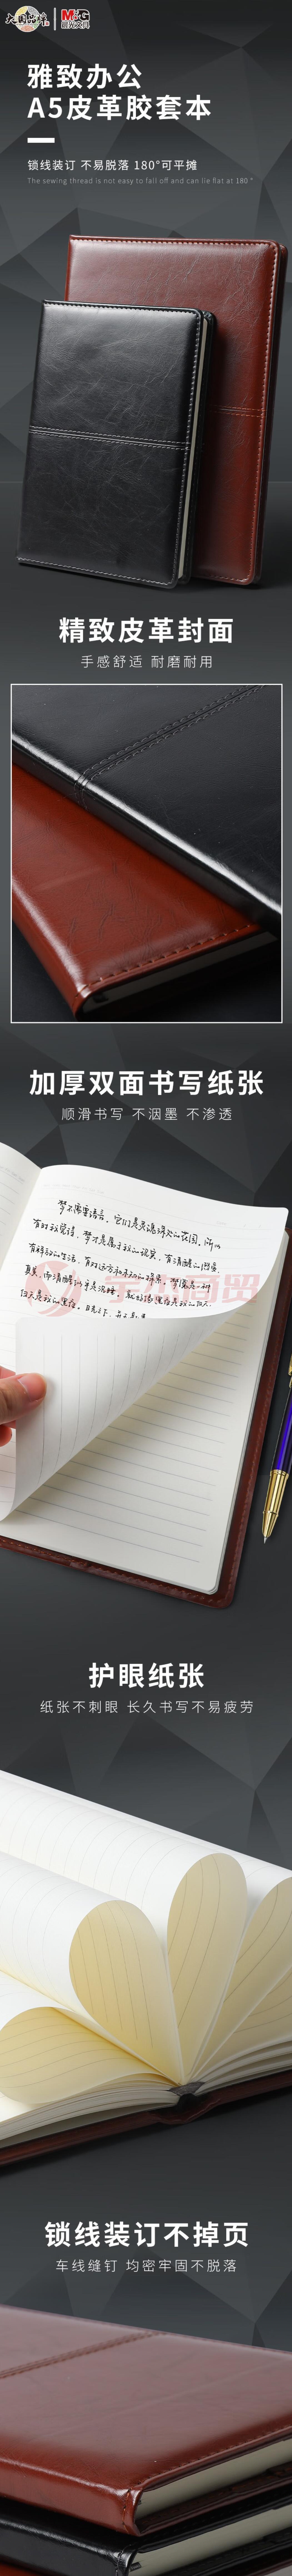 大国品牌
M&G
晨光文具
雅致办公
A5皮革胶套本
锁线装订 不易脱落 180°可平摊
The sewing thread is not easy to fall off and can lie flat at 180 °
精致皮革封面
手感舒适 耐磨耐用
加厚双面书写纸张
顺滑书写 不洇墨 不渗透
梦不需要语言，它们是灵魂深处的花园，所以
有时我觉得，梦才是属于我的现实，有清醒的
护眼纸张
纸张不刺眼 长久书写不易疲劳
锁线装订不掉页
车线缝钉 均密牢固不脱落